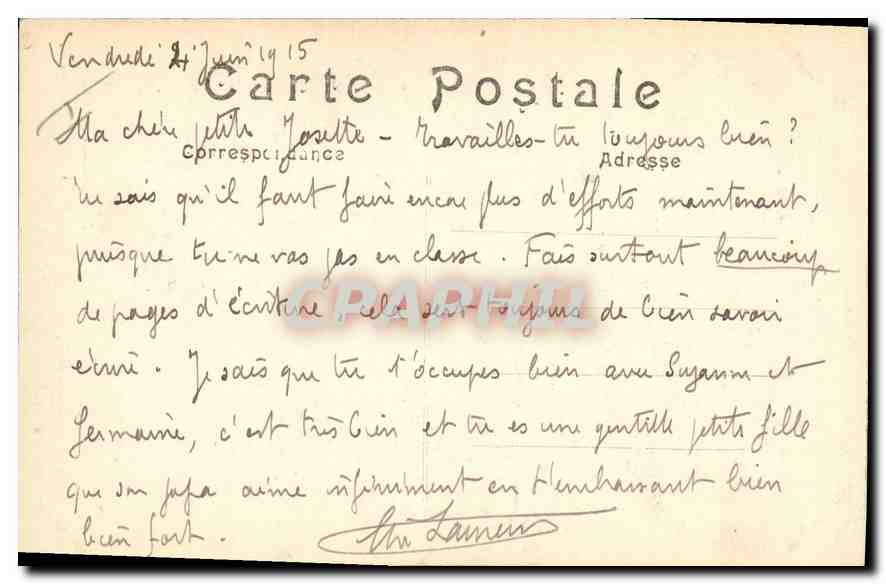 Vendredi 4 Juin 1915
Carte Postale
Ma chère petite Josette - Travailles-tu toujours bien ?
Correspondance
Adresse
Tu sais qu'il faut faire encore plus d'efforts maintenant,
puisque tu ne vas pas en classe. Fais surtout beaucoup
de pages d'écriture, cela sert toujours de bien savoir
CPAPHIL
écrire. Je sais que tu t'occupes bien avec Suzanne et
Germaine, c'est très bien et tu es une gentille petite fille
que son papa aime infiniment en t'embrassant bien
bien fort.